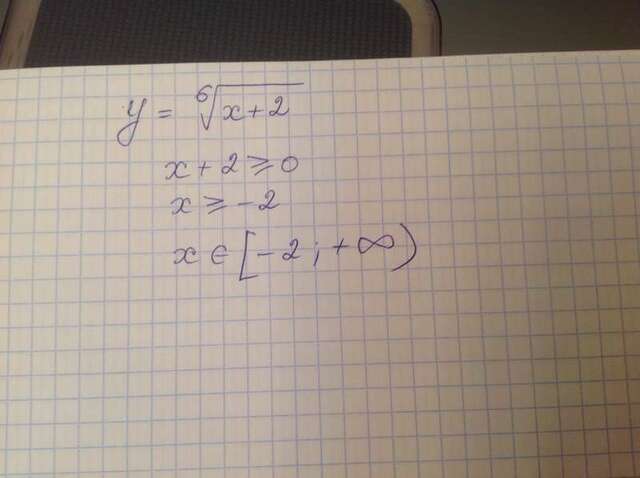 y = ⁶√(x+2)
x + 2 ⩾ 0
x ⩾ -2
x ∈ [-2; +∞)